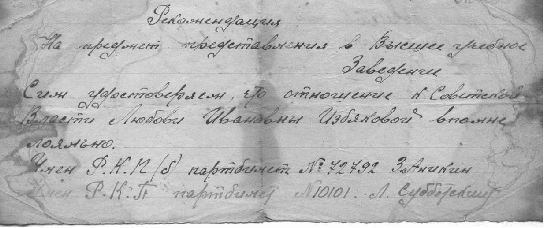 Рекомендация
На предмет представления в Высшее учебное
Заведение
Сим удостоверяем, что отношение к Советской
Власти Любови Ивановны Избяковой вполне
лояльно.
Член Р.К.П/б/ партбилет № 72792 З.Аникин
Член Р.К.П партбилет №10101. Л.